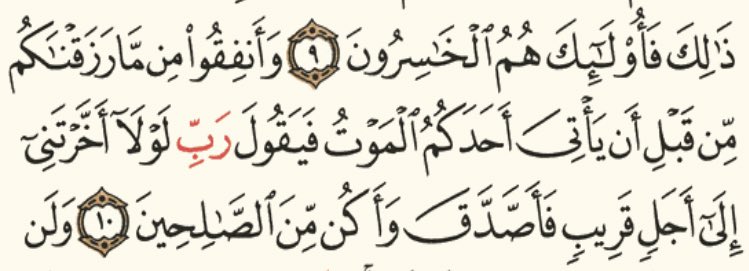 ذَٰلِكَ فَأُو۟لَـٰٓئِكَ هُمُ ٱلْخَـٰسِرُونَ ٩ وَأَنفِقُوا۟ مِن مَّا رَزَقْنَـٰكُم
مِّن قَبْلِ أَن يَأْتِىَ أَحَدَكُمُ ٱلْمَوْتُ فَيَقُولَ رَبِّ لَوْلَآ أَخَّرْتَنِىٓ
إِلَىٰٓ أَجَلٍ قَرِيبٍ فَأَصَّدَّقَ وَأَكُن مِّنَ ٱلصَّـٰلِحِينَ ١٠ وَلَن